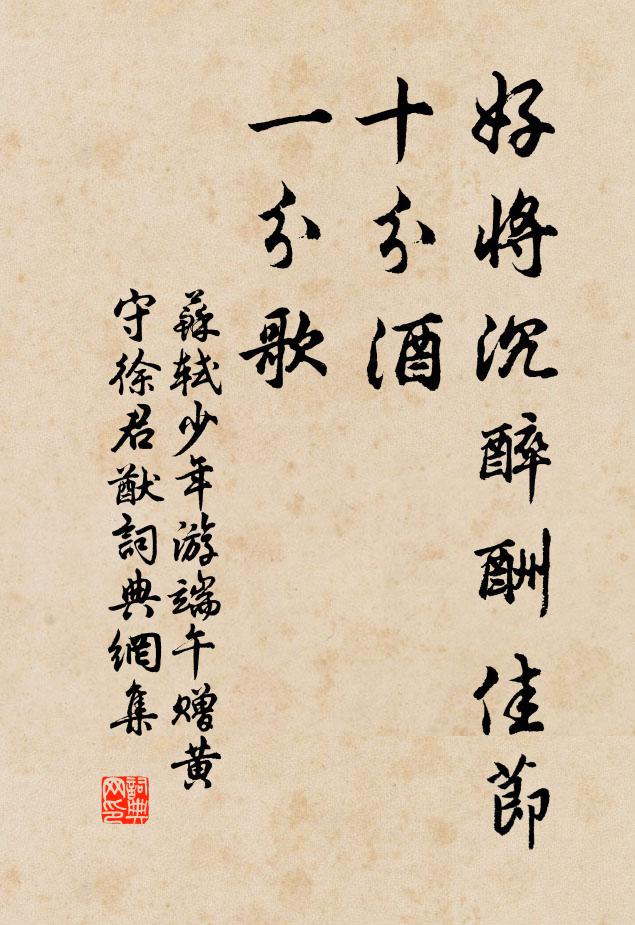 好將沉醉酬佳節
十分酒
一分歌
蘇軾少年游端午赠黄
守徐君猷詞典網集
詞典网印